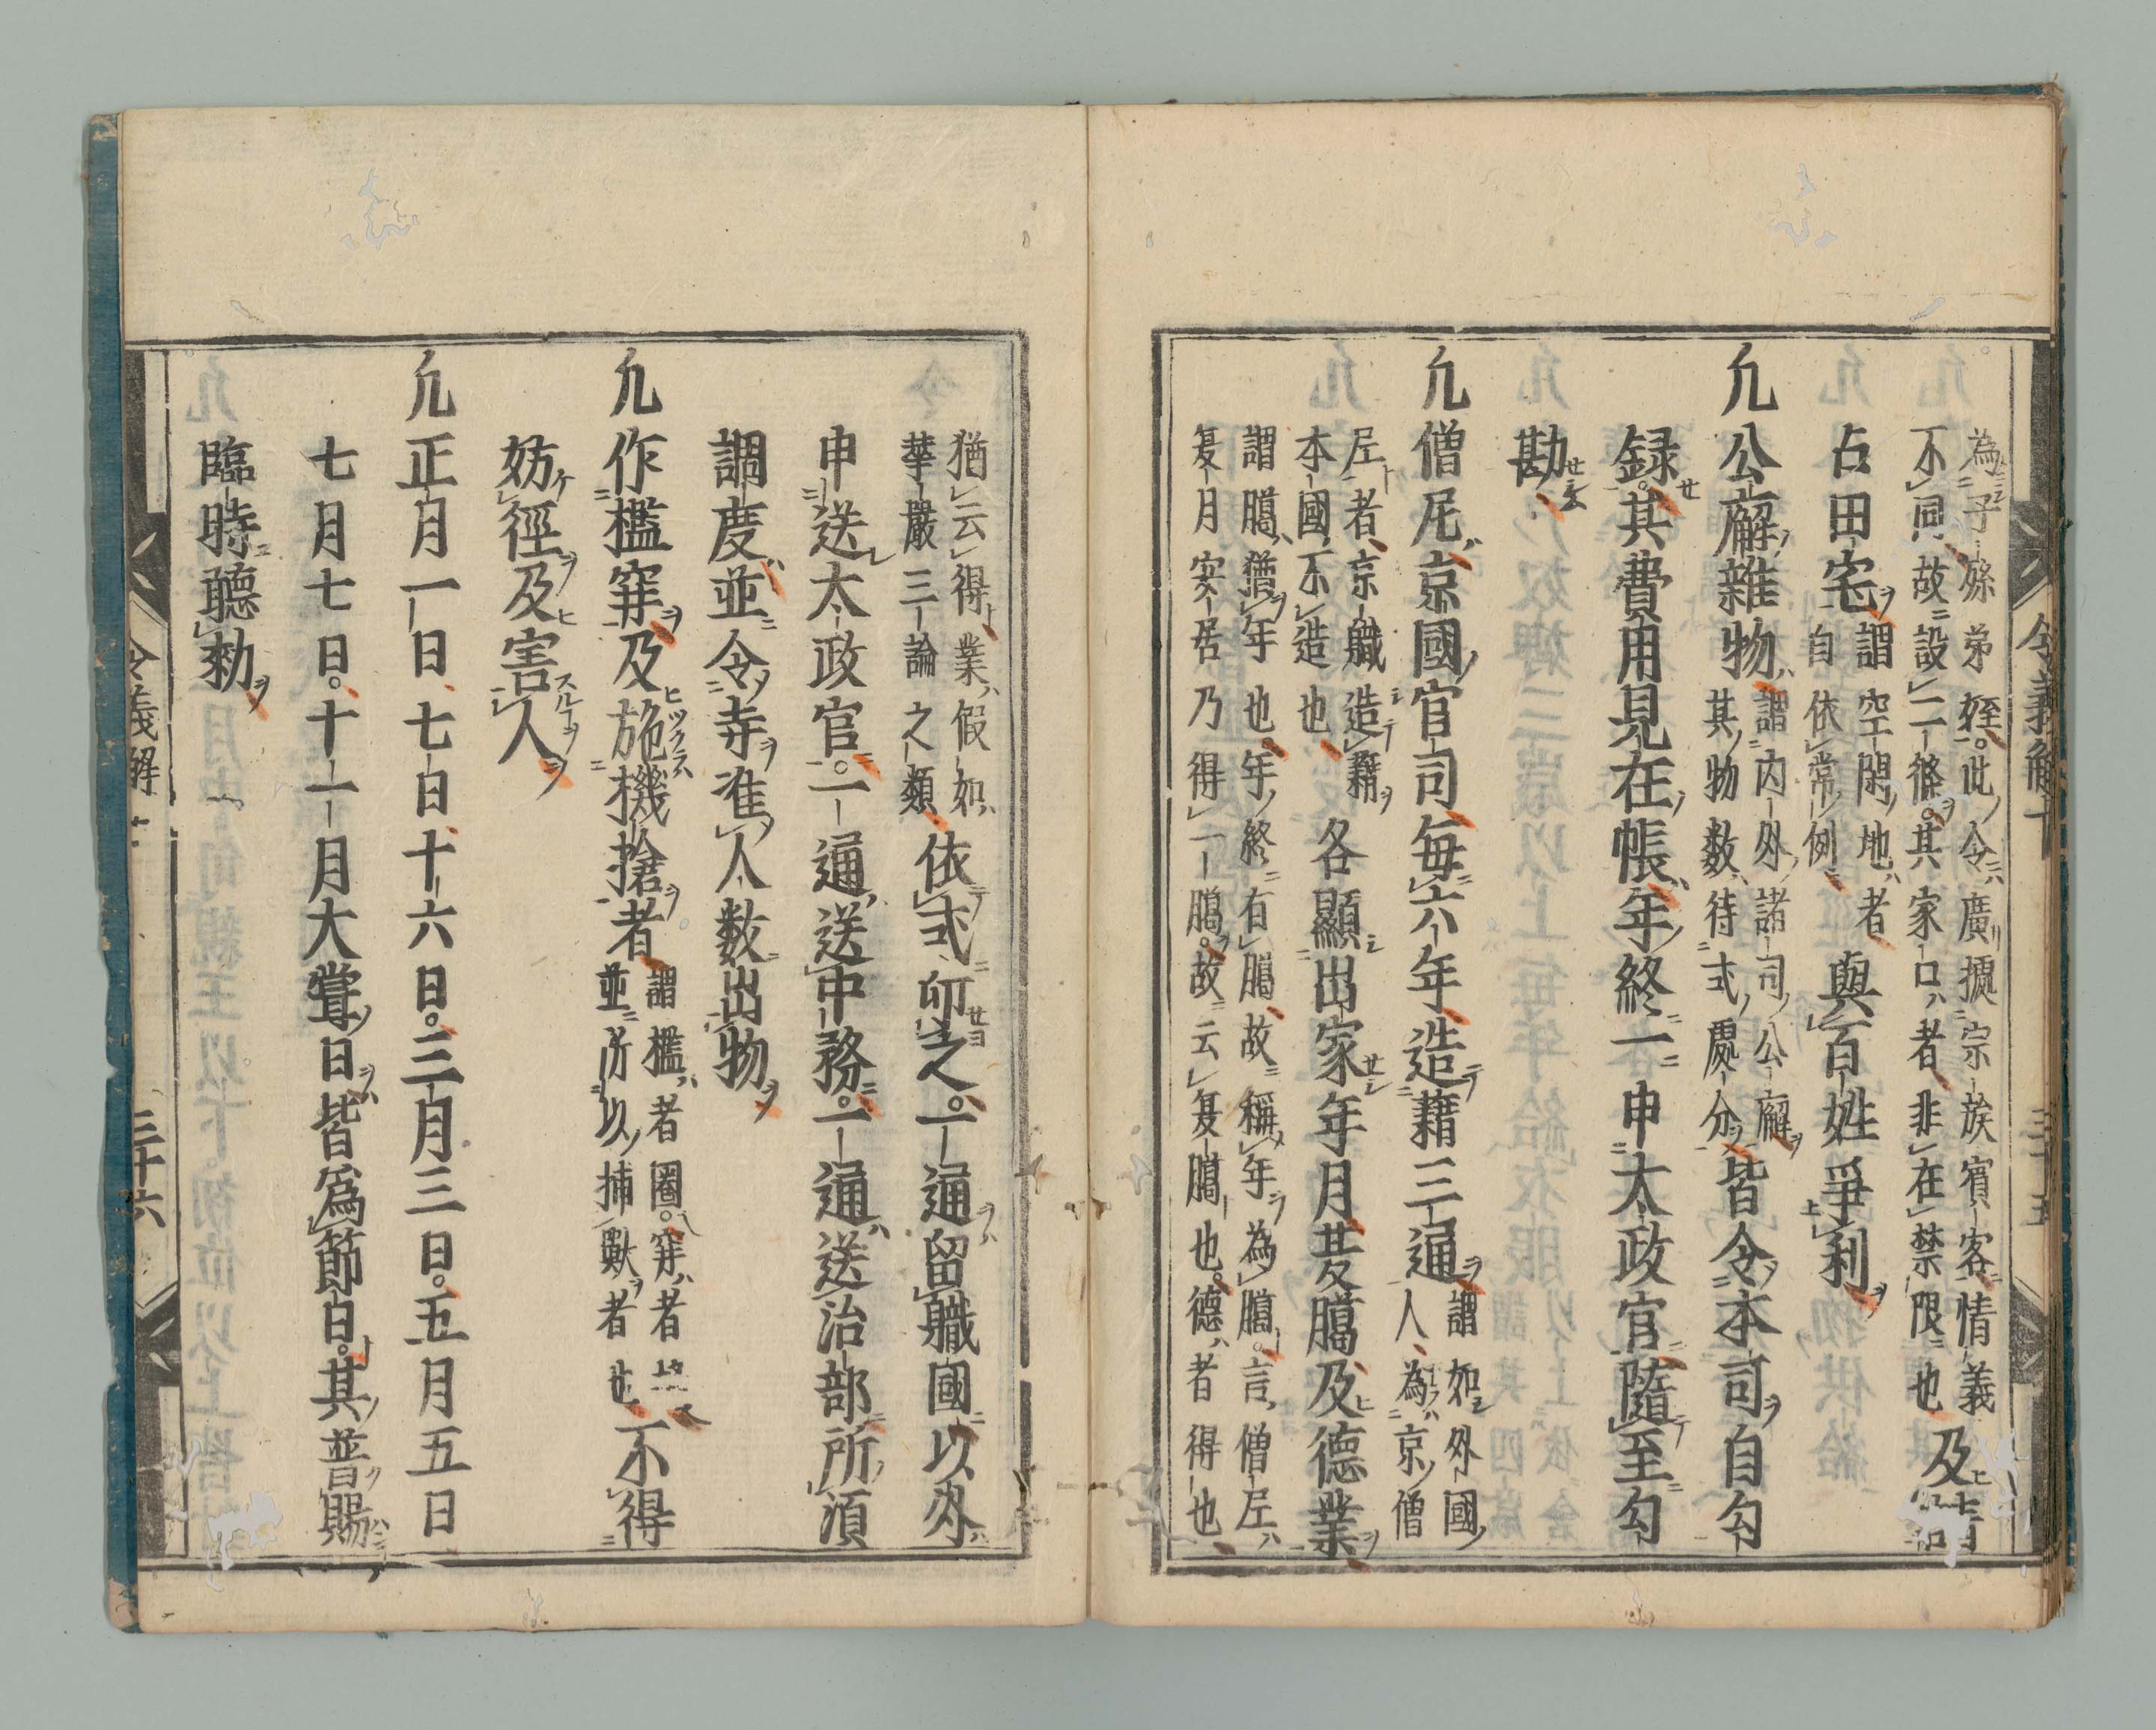 為子孫弟姪此令廣摂宗族賓客情義
不同故設二條其家口者非在禁限也及請
占田宅謂空閑地者
自依常例與百姓爭利
凢公廨雜物謂内外諸司公廨
其物数待式處分皆令本司自勾
録其費用見在帳年終一申太政官隨至勾
勘
凢僧尼京國官司每六年造籍三通謂如外國
人為京僧
尼者京職造籍
本國不造也各顯出家年月夏臈及德業
謂臈猶年也年終有臈故稱年為臈言僧尼
夏月安居乃得一臈故云夏臈也德者得也
猶云得業假如
華嚴三論之類依式印之一通留職國以外
申送太政官一通送中務一通送治部所須
調度並令寺准人数出物
凢作檻穽及施機搶者謂檻者圈穽者
並所以捕獸者也不得
妨徑及害人
凢正月一日七日十六日三月三日五月五日
七月七日十一月大嘗日皆爲節日其普賜
臨時聽勅
令義解十
三十五
令義解十
三十六